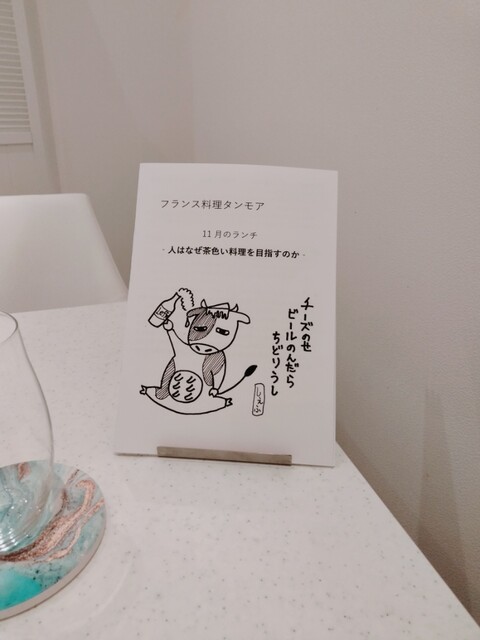 フランス料理タンモア
11月のランチ
- 人はなぜ茶色い料理を目指すのか -
チーズのせ
ビールのんだら
ちどりうし
しぇふ